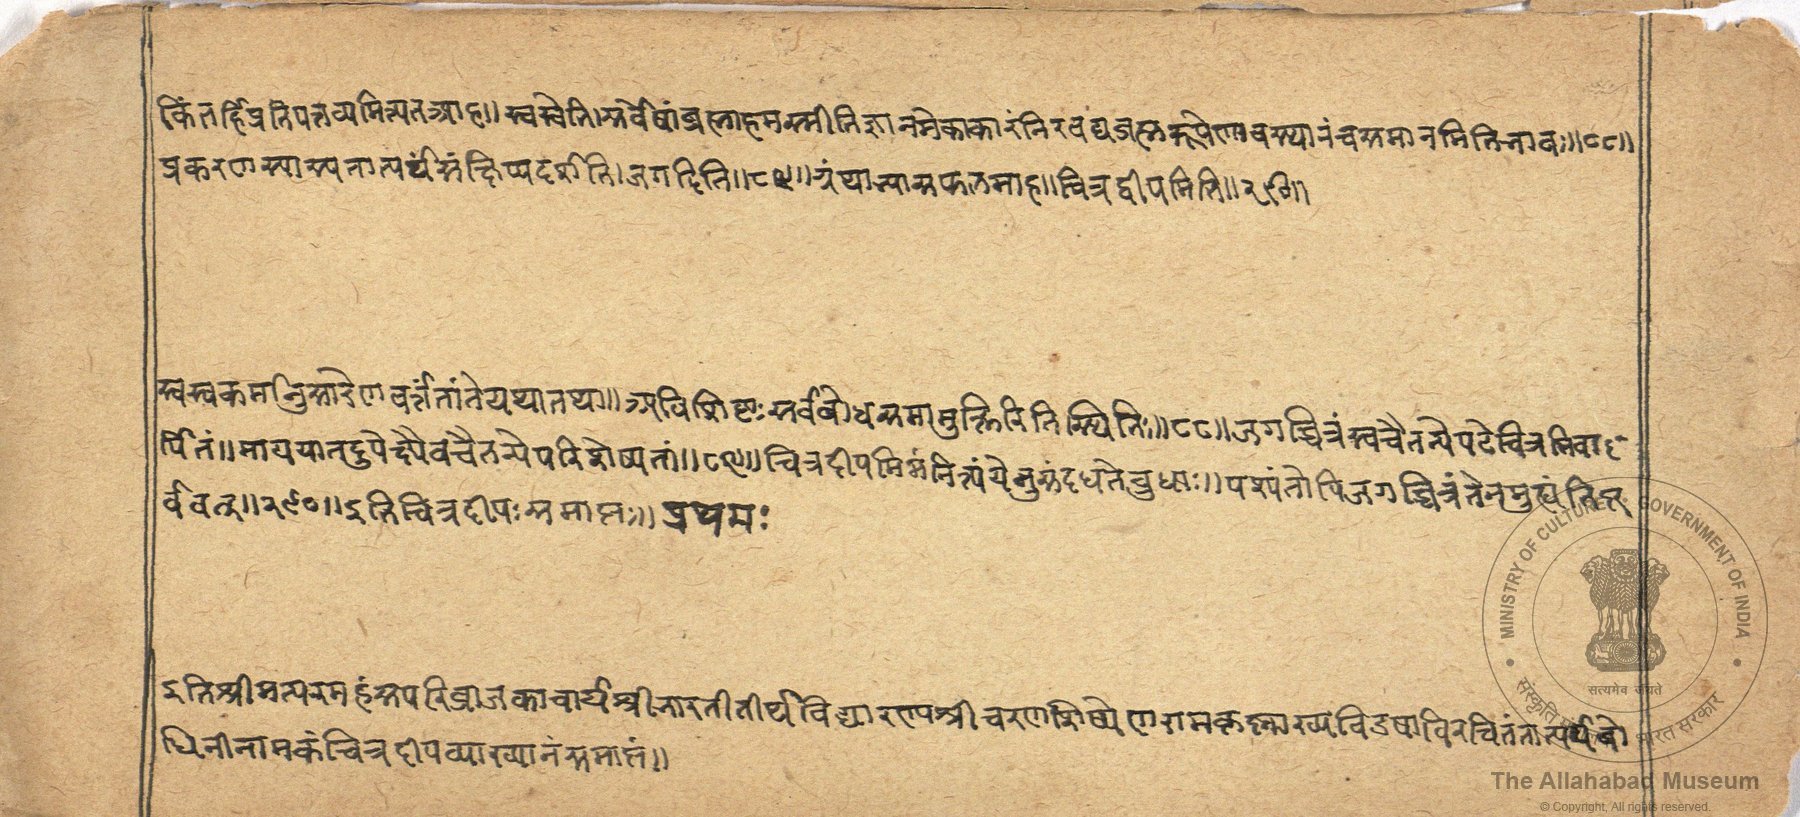 किं तर्हि प्रतिपत्तव्यमित्यत आह॥ स्वस्वेति। सर्वेषां ब्रह्माहमस्मीति ज्ञानमेकाकारं निरवद्यब्रह्मरूपेणावस्थानं च समानमिति भावः॥८८॥
प्रकरणस्यास्य तात्पर्यं संक्षिप्य दर्शति। जगदिति॥८९॥ ग्रंथाभ्यासफलमाह॥ चित्रद्वीपमिति॥२९०॥
स्वस्वकर्मानुसारेण वर्त्ततां ते यथा तथा॥ अविशिष्टः सर्वबोधसमा मुक्तिरिति स्थितिः॥८८॥ जगच्चित्रं स्वचैतन्ये पटे चित्रमिवा
र्पितं॥ मायया तदुपेक्ष्यैव चैतन्ये परिशेष्यतां॥८९॥ चित्रदीपमिमं नित्यं येनुसंदधते बुधाः॥ पश्यंतोपि जगच्चित्रं ते न मुह्यंति पू
र्ववत्॥२९०॥ इति चित्रदीपः समाप्तः॥ प्रथमः
इति श्रीमत्परमहंसपरिव्राजकाचार्यश्रीभारतीतीर्थविद्यारण्यश्रीचरणशिष्येण रामकृष्णाख्यविदुषा विरचितं तात्पर्यबो
धिनीनामकं चित्रदीपव्याख्यानं समाप्तं॥
MINISTRY OF CULTURE GOVERNMENT OF INDIA
सत्यमेव जयते
संस्कृति भारत सरकार
The Allahabad Museum
© Copyright, All rights reserved.